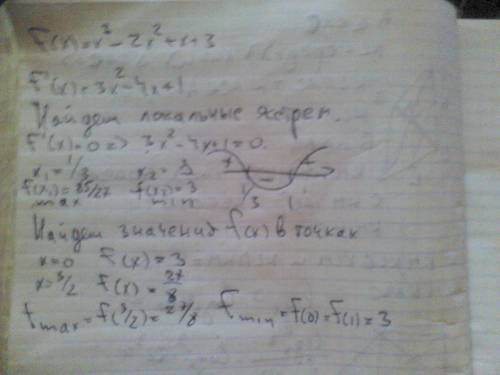 f(x)=x³-2x²+x+3
f'(x)=3x²-4x+1
Найдем локальные экстрем.
f'(x)=0 => 3x²-4x+1=0
x₁=1/3 x₂=3
+ - +
1/3 1
f(x₁)=85/27 f(x₂)=3
max min
Найдем значения f(x) в точках
x=0 f(x)=3
x=3/2 f(x)=27/8
fmax=f(3/2)=27/8 fmin=f(0)=f(1)=3